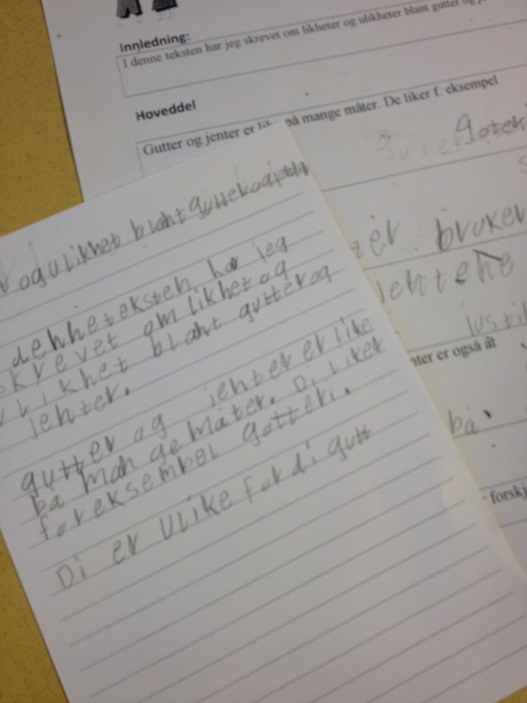 Innledning:
I denne teksten har jeg skrevet om likheter og ulikheter blant gutter og
Hoveddel
Gutter og jenter er på mange måter. De liker f. eksempel
gotek
bruker
jentene
justi
nter er også at
på
forskj
og ulikhet blant gutter og jent
denne teksten har jeg
skrevet om likhet og
ulikhet blant gutter og
jenter.
gutter og jenter er like
på mange måter. Di liker
for eksembel gotteri.
Di er ulike fordi gutt